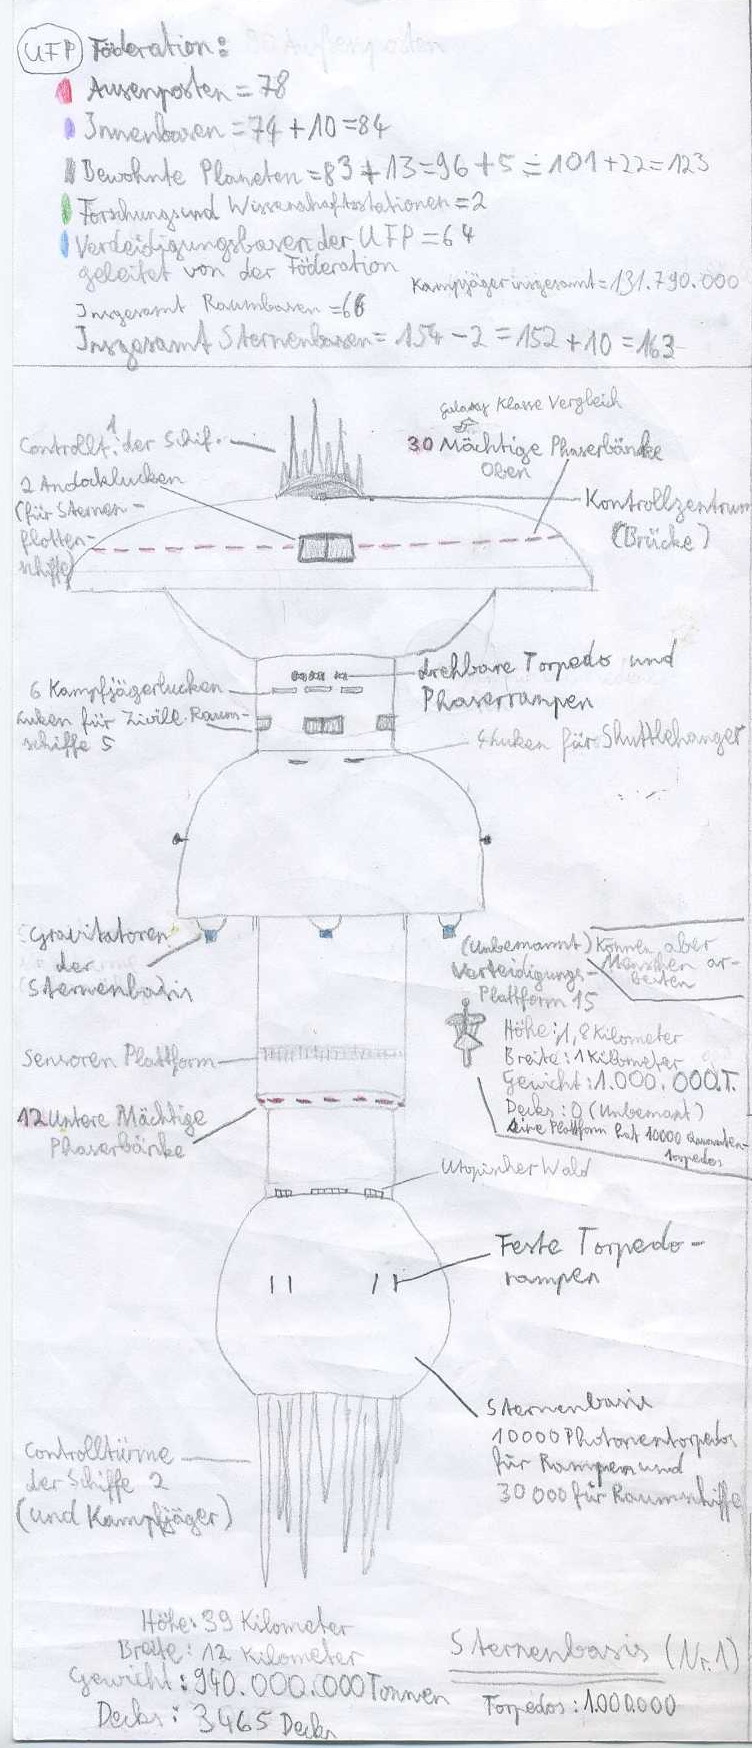 UFP Föderation:
Ausenposten = 78
Innenbasen = 74 + 10 = 84
Bewohnte Planeten = 83 + 13 = 96 + 5 = 101 + 22 = 123
Forschungsund Wissenshaftsstationen = 2
Verdeidigungsbasen der UFP = 64
geleitet von der Föderation
Kampfjäger insgesamt = 131.790.000
Insgesamt Raumbasen = 66
Insgesamt Sternenbasen = 154 - 2 = 152 + 10 = 163
Galaxy Klasse Vergleich
Controllt. 1 der Schif.
30 Mächtige Phaserbänke
Oben
2 Andocklucken
(für Sternen-
flotten-
schiffe)
Kontrollzentrum
(Brücke)
drehbare Torpedo und
Phaserrampen
6 Kampfjägerlucken
Luken für Zivile Raum-
schiffe 5
4 Luken für Shuttlehanger
Gravitatoren
der
Sternenbasis
(Unbemannt) Können aber
Menschen ar-
beiten
Verteidigungs-
Plattform 15
Höhe: 1,8 Kilometer
Breite: 1 Kilometer
Gewicht: 1.000.000.T.
Decks: 0 (Unbemant)
Eine Plattform hat 10000 Quanten-
torpedos
Sensoren Plattform
12 Untere Mächtige
Phaserbänke
Utopischer Wald
Feste Torpedo-
rampen
Sternenbasis
10000 Photonentorpedos
für Rampen und
30000 für Raumschiffe
Controlltürme
der Schiffe 2
(und Kampfjäger)
Höhe: 39 Kilometer
Breite: 12 Kilometer
Gewicht: 940.000.000 Tonnen
Decks: 3465 Decks
Sternenbasis (Nr. 1)
Torpedos: 1.000.000